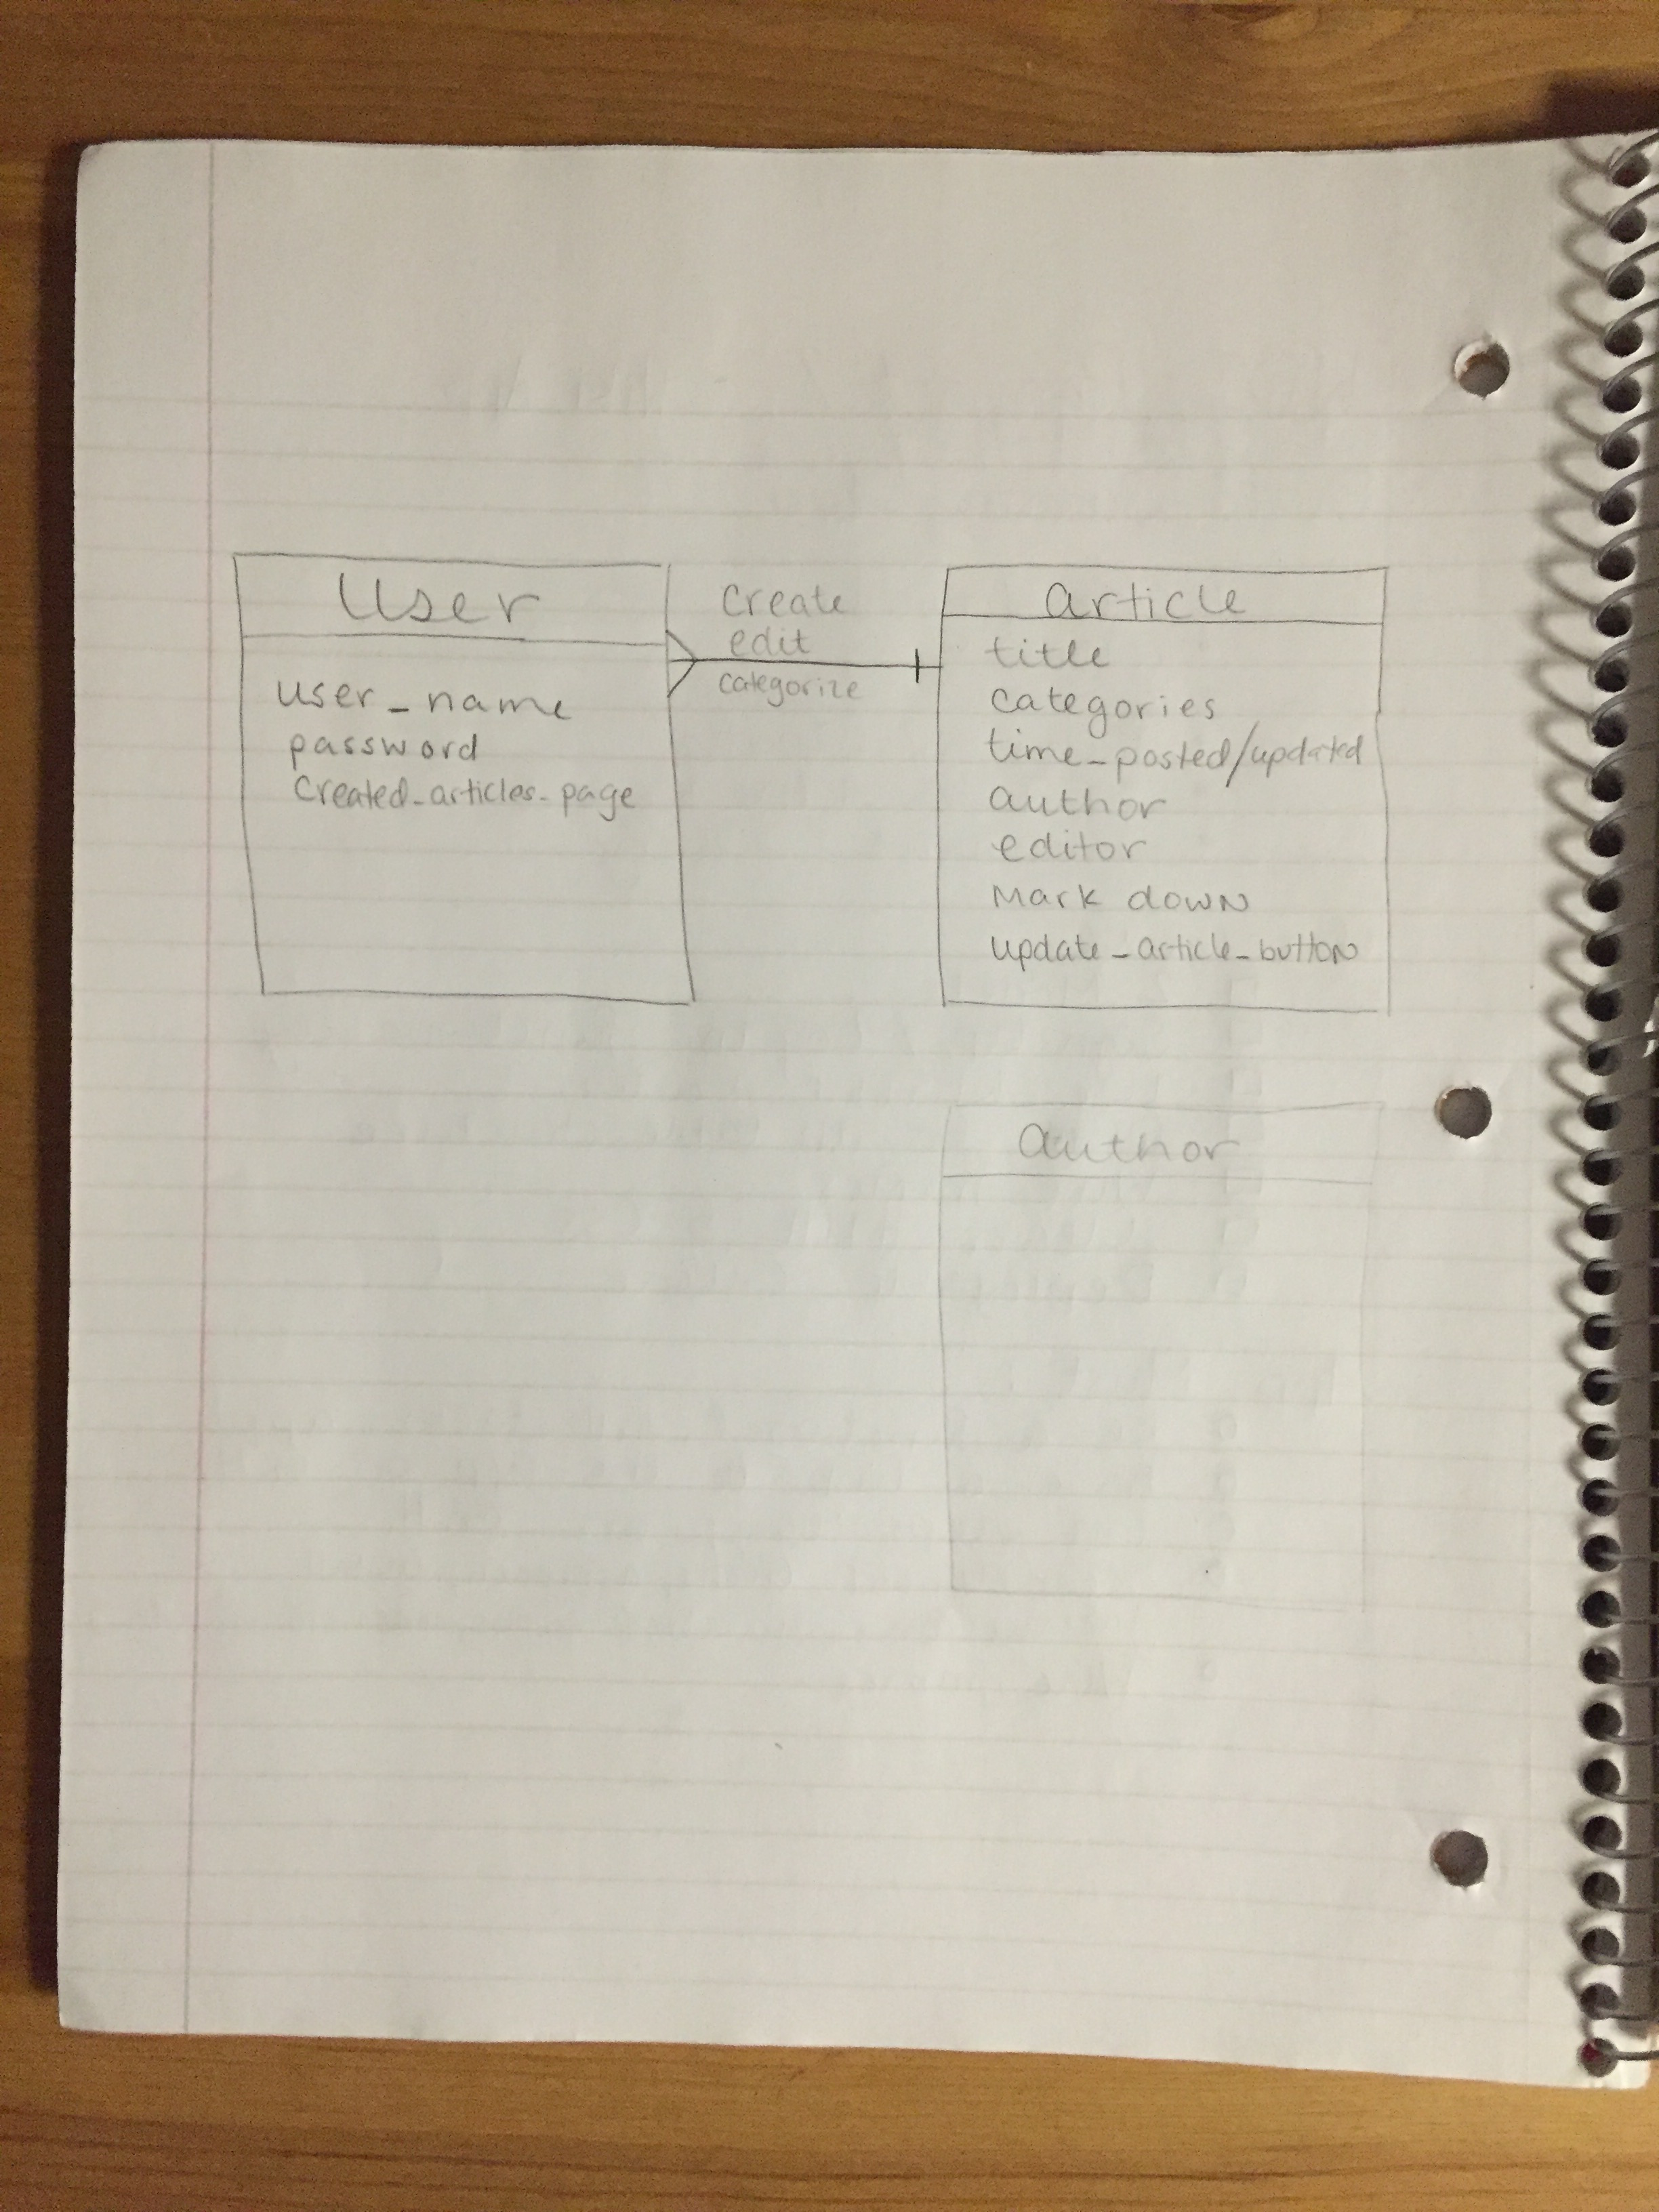 User
user_name
password
Created_articles_page
Create
edit
categorize
article
title
categories
time_posted/updated
author
editor
Mark down
update_article_button
author